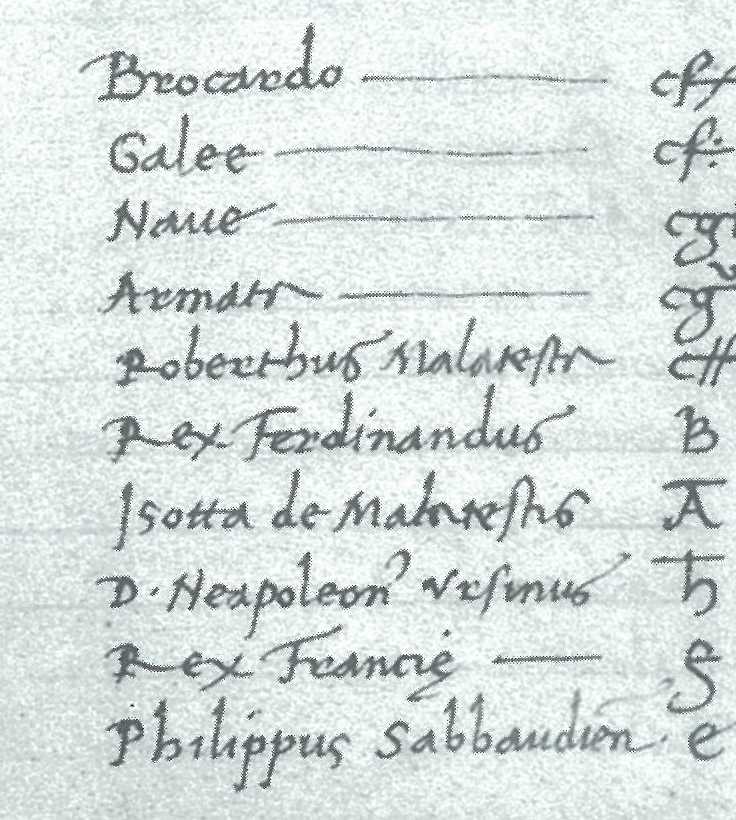 Brocardo
Galee
Naue
Armat
Roberthus Malatesta
Rex Ferdinandus B
Isotta de Malatestis A
D. Neapoleon Vrsinus ħ
Rex Francię
Philippus Sabbaudien. e